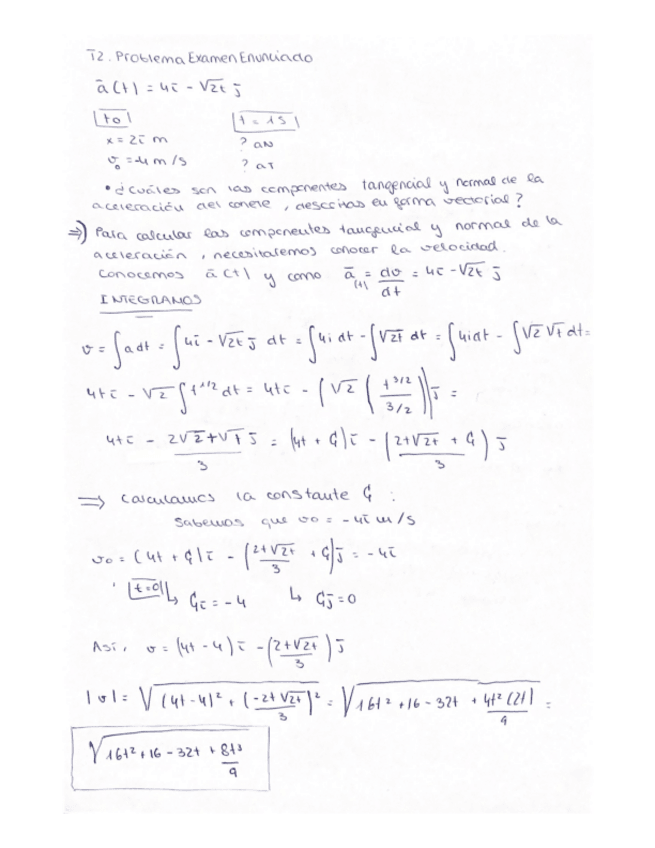 T2. Problema Examen Enunciado
ā(t) = 4ī - √2t j̄
to t = 1s
x = 2ī m ? aN
v₀ = -4 m/s ? aT
• ¿Cuáles son las componentes tangencial y normal de la
aceleración del , descritas en forma vectorial?
⇒) Para calcular las componentes tangencial y normal de la
aceleración, necesitaremos conocer la velocidad.
Conocemos ā(t) y como ā(t) = dv/dt = 4ī - √2t j̄
INTEGRAMOS
v = ∫a dt = ∫4ī - √2t j̄ dt = ∫4i dt - ∫√2t dt = ∫4i dt - ∫√2 √t dt =
4tī - √2 ∫t^1/2 dt = 4tī - (√2 (t^3/2 / 3/2)) j̄ =
4tī - 2√2 t√t / 3 j̄ = (4t + C)ī - (2t√2t / 3 + C) j̄
⇒ Calculamos la constante C :
Sabemos que v₀ = -4ī m/s
v₀ = (4t + C)ī - (2t√2t / 3 + C) j̄ = -4ī
t=0 ↳ Cī = -4 ↳ Cj̄ = 0
Así, v = (4t - 4)ī - (2t√2t / 3) j̄
|v| = √((4t - 4)² + (-2t√2t / 3)²) = √(16t² + 16 - 32t + 4t²(2t) / 9) =
√(16t² + 16 - 32t + 8t³ / 9)